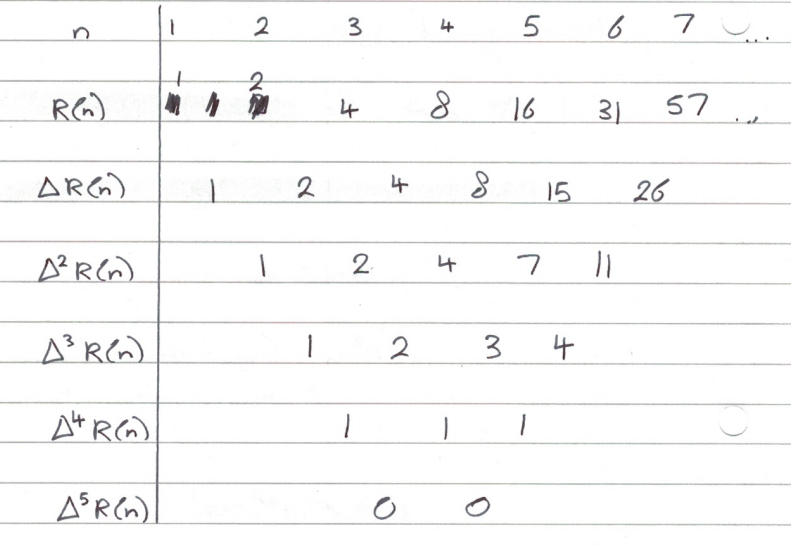 n 1 2 3 4 5 6 7 ...
1 2
R(n) 4 8 16 31 57 ...
ΔR(n) 1 2 4 8 15 26
Δ² R(n) 1 2 4 7 11
Δ³ R(n) 1 2 3 4
Δ⁴ R(n) 1 1 1
Δ⁵ R(n) 0 0